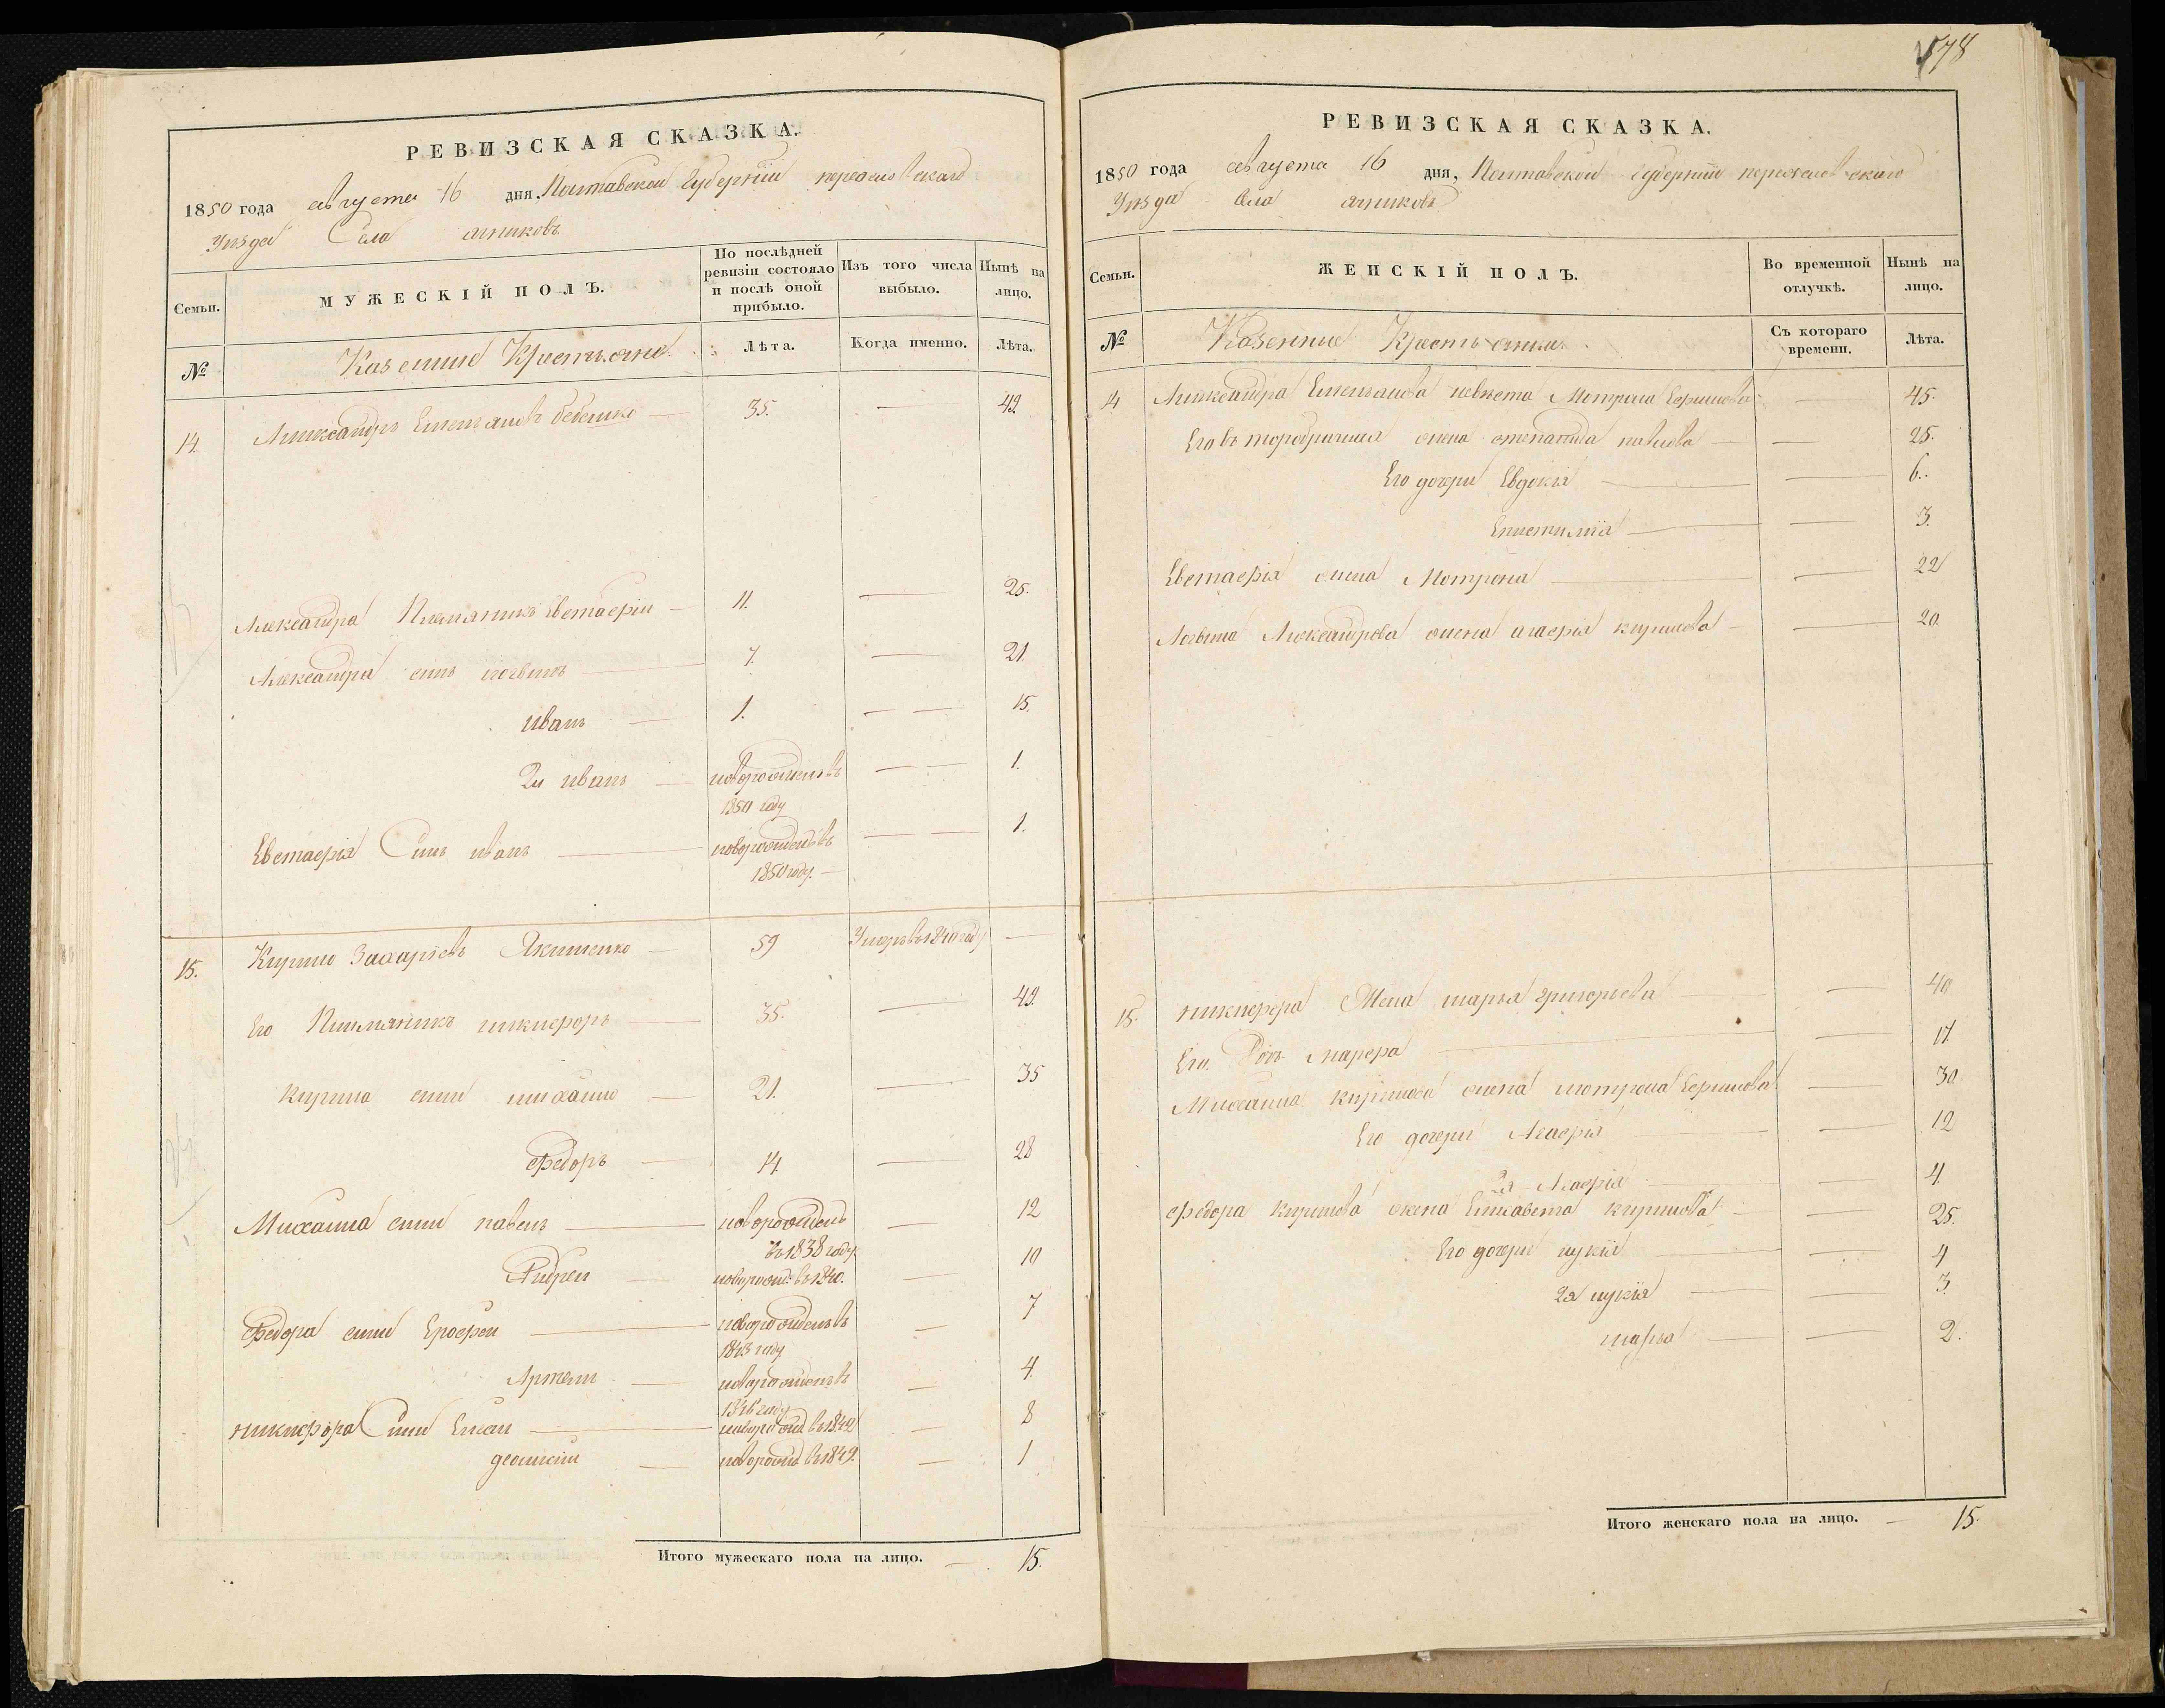 РЕВИЗСКАЯ СКАЗКА.
1850 года августа 16 дня, Полтавской Губерніи переяславскаго
Уѣзда Села
Семьи. МУЖЕСКІЙ ПОЛЪ. По послѣдней ревизіи состояло и послѣ оной прибыло. Изъ того числа выбыло. Нынѣ на лицо.
№ Казенные Крестьяне. Лѣта. Когда именно. Лѣта.
14. Александръ Емельяновъ 35. — 49
Александра Племяникъ Евстафіи — 11. — 25.
Александра сынъ логвинъ — 7. — 21.
иванъ — 1. — 15.
2й иванъ — новорожденъ въ 1850 году — 1.
Евстафія Сынъ иванъ — новорожденъ въ 1850 году. — 1.
15. Кирило Захаріевъ Якименко — 59 Умеръ въ 1840 году —
Его Племяникъ никифоръ — 35. — 49.
кирила сыны михайло — 21. — 35
федоръ — 14 — 28
Михаила сыны павелъ — новорожденъ въ 1838 году — 12
Андрей — новорожд. въ 1840. — 10
Федора сыны Ерофей — новорожденъ въ 1843 году — 7
Артемъ — новорожденъ въ 1846 году — 4.
никифора Сыны — новорожд. въ 1842 — 8
— новорожд. въ 1849. — 1
Итого мужескаго пола на лицо. — 15.
578
РЕВИЗСКАЯ СКАЗКА.
1850 года августа 16 дня, Полтавской губерніи переяславскаго
Уѣзда Села
Семьи. ЖЕНСКІЙ ПОЛЪ. Во временной отлучкѣ. Нынѣ на лицо.
№ Казенные Крестьянки. Съ котораго времени. Лѣта.
14 Александра Емельянова невѣста Мотрона — 45.
Его жена степанида павлова — — 25.
Его дочери Евдокія — — 6.
Епистимія — — 3.
Евстафія жена Мотрона — — 22
Логвина Александрова жена агафія кирилова — — 20.
15. никифора Жена марья григорьева — — 40
Его дочь марфа — — 17.
Михаила кирилова жена мотрона — 30
Его дочери Агафія — — 12
2я Агафія — — 4
федора кирилова жена Елисавета кирилова — — 25.
Его дочери лукія — — 4
2я лукія — — 3.
марья — — 2.
Итого женскаго пола на лицо. — 15.